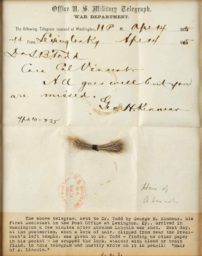 Office U. S. Military Telegraph,
WAR DEPARTMENT.
The following Telegram received at Washington, M. Apr 14
From Lexington Ky Apr 14
Dr L B Todd
Care
All goes well but you
are missed.
Geo H Kinnear
Hair of
A Lincoln
The above telegram, sent to Dr. Todd by George H. Kinnear, his
first Assistant in the Post Office at Lexington, Ky., arrived in
Washington a few minutes after Abraham Lincoln was shot. Next day,
at the postmortem, when a lock of hair, clipped from near the Presi-
dent's left temple, was given to Dr. Todd - finding no other paper
in his pocket - he wrapped the lock, stained with blood or brain
fluid, in this telegram and hastily wrote on it in pencil: "Hair
of A. Lincoln."